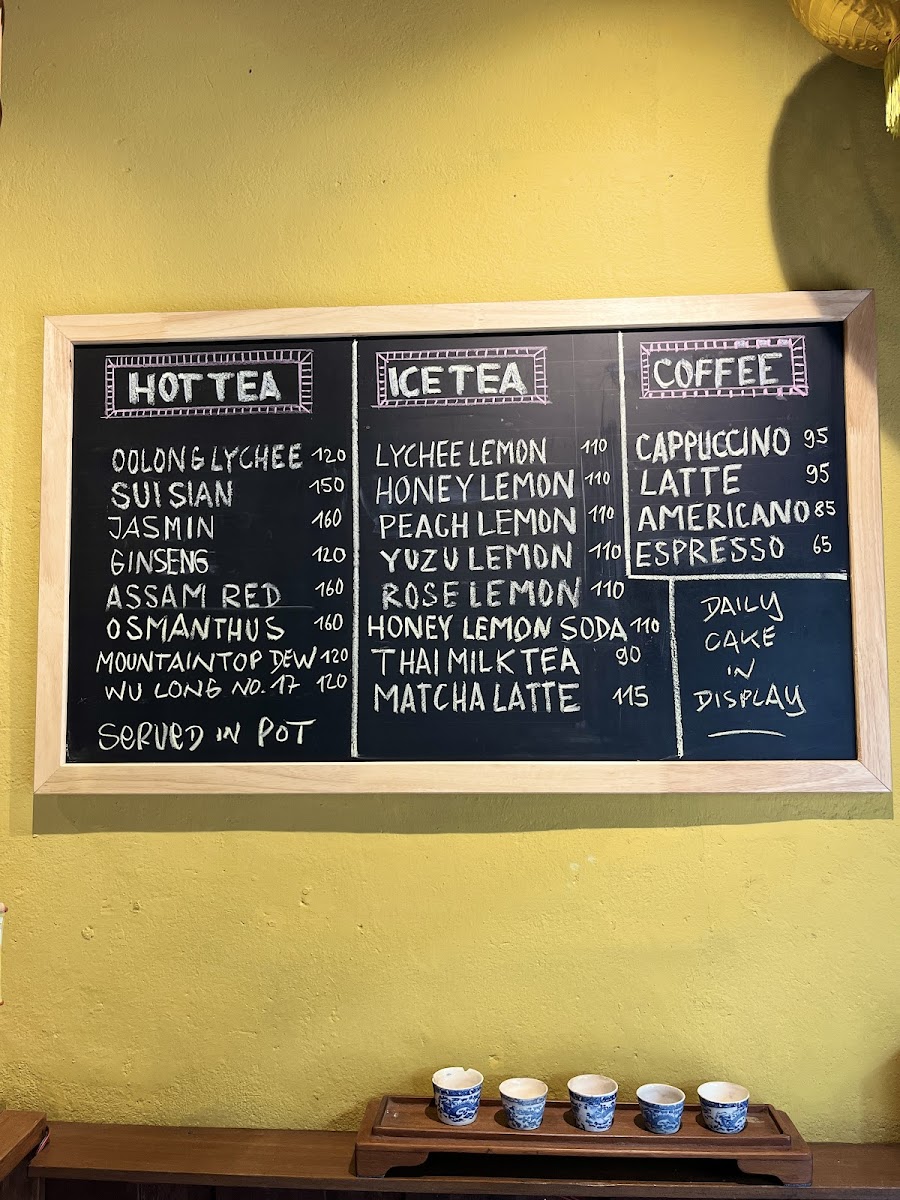 HOT TEA
OOLONG LYCHEE 120
SUI SIAN 150
JASMIN 160
GINSENG 120
ASSAM RED 160
OSMANTHUS 160
MOUNTAINTOP DEW 120
WU LONG NO. 17 120
SERVED IN POT
ICE TEA
LYCHEE LEMON 110
HONEY LEMON 110
PEACH LEMON 110
YUZU LEMON 110
ROSE LEMON 110
HONEY LEMON SODA 110
THAI MILK TEA 90
MATCHA LATTE 115
COFFEE
CAPPUCCINO 95
LATTE 95
AMERICANO 85
ESPRESSO 65
DAILY
CAKE
IN
DISPLAY